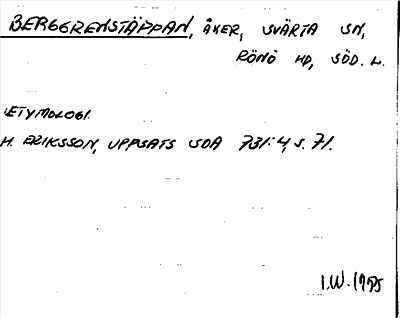 BERGGRENSTÄPPAN, ÅKER, SVÄRTA SN,
RÖNÖ HD, SÖD. L.
ETYMOLOGI.
H. ERIKSSON, UPPSATS SOA 731:4, S. 71.
I.W. 1975